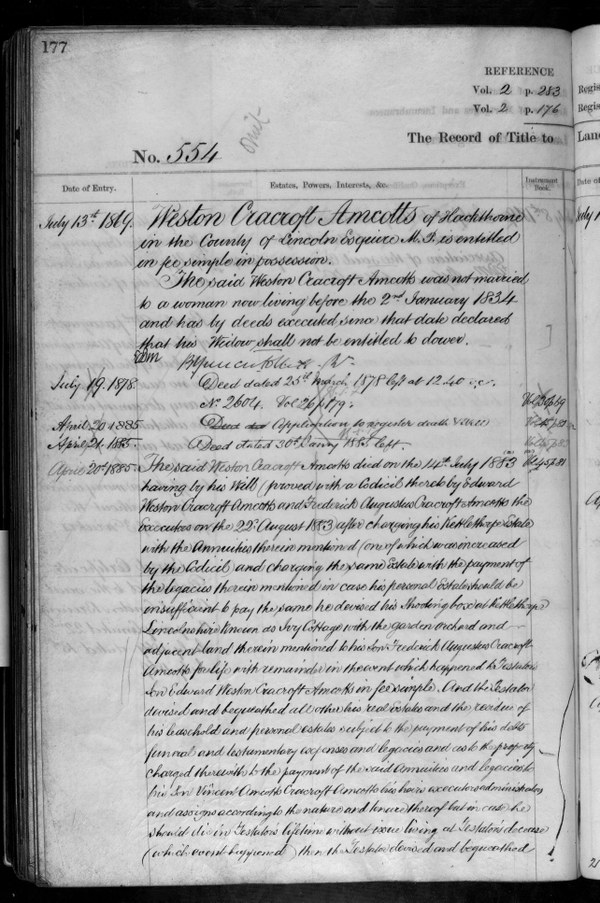 177
REFERENCE
Vol. 2 p. 283
Vol. 2 p. 176
The Record of Title to
No. 554
Date of Entry.
Estates, Powers, Interests, &c.
Instrument Book.
July 13th 1869. Weston Cracroft Amcotts of Hackthorne
in the County of Lincoln Esquire M.P. is entitled
in fee simple in possession.
The said Weston Cracroft Amcotts was not married
to a woman now living before the 2nd January 1834
and has by deeds executed since that date declared
that his Widow shall not be entitled to dower.
July 19 1878. Deed dated 25th March 1878 left at 12.40
No. 2604. Vol 26 p 119.
April 20 1885 Application to register death
April 21. 1885. Deed dated 30th 1885 left.
April 20th 1885. The said Weston Cracroft Amcotts died on the 14th July 1883
having by his Will (proved with a Codicil thereto by Edward
Weston Cracroft Amcotts and Frederick Augustus Cracroft Amcotts the
Executors on the 22nd August 1883) after charging his Kettlethorpe Estate
with the Annuities therein mentioned (one of which was increased
by the Codicil) and charging the same Estate with the payment of
the legacies therein mentioned in case his personal Estate should be
insufficient to pay the same he devised his box at Kettlethorpe
Lincolnshire known as Ivy Cottage with the garden orchard and
adjacent land therein mentioned to his Son Frederick Augustus Cracroft
Amcotts for life with remainder in the event which happened to Testator's
Son Edward Weston Cracroft Amcotts in fee simple. And the Testator
devised and bequeathed all other his real estates and the residue of
his leasehold and personal estates subject to the payment of his debts
funeral and testamentary expenses and legacies and as to the property
charged therewith to the payment of the said Annuities and legacies to
his Son Vincent Amcotts Cracroft Amcotts his heirs executors administrators
and assigns according to the nature and tenure thereof but in case he
should die in Testator's lifetime without issue living at Testator's decease
(which event happened) then the Testator devised and bequeathed